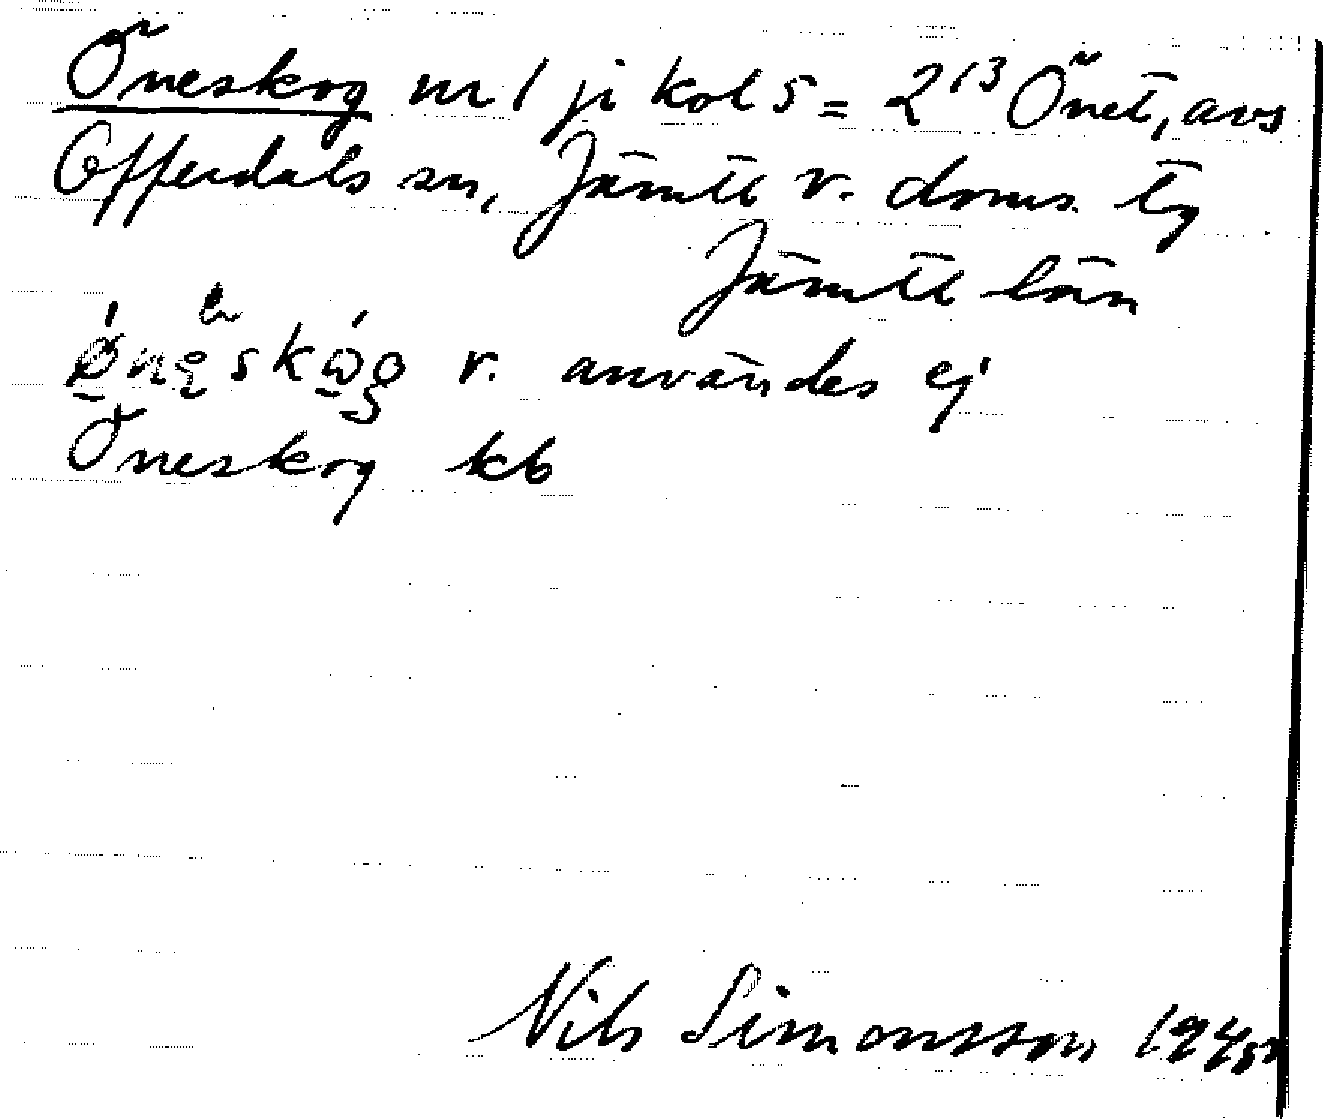 Öneskog nr 1 ji kol 5 = 2¹³ Önet, avs
Offerdals sn, Jämtl v. doms. tg
Jämtl län
v. användes ej
Öneskog kb
Nils Simonsson